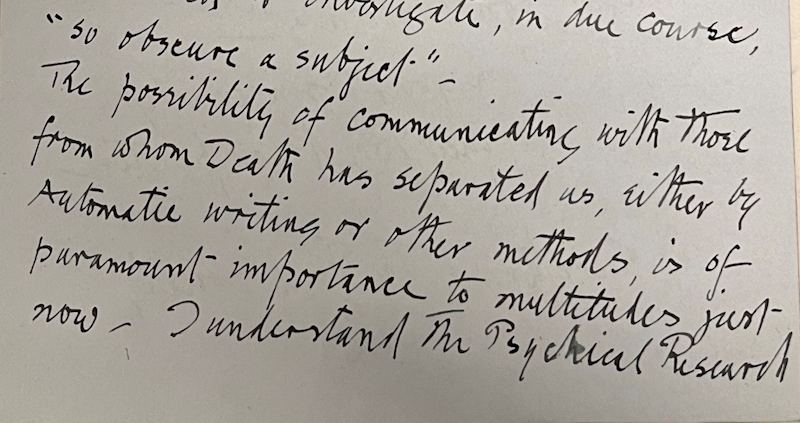 investigate, in due course,
"so obscure a subject" –
The possibility of communicating with those
from whom Death has separated us, either by
Automatic writing or other methods, is of
paramount importance to multitudes just
now – I understand the Psychical Research